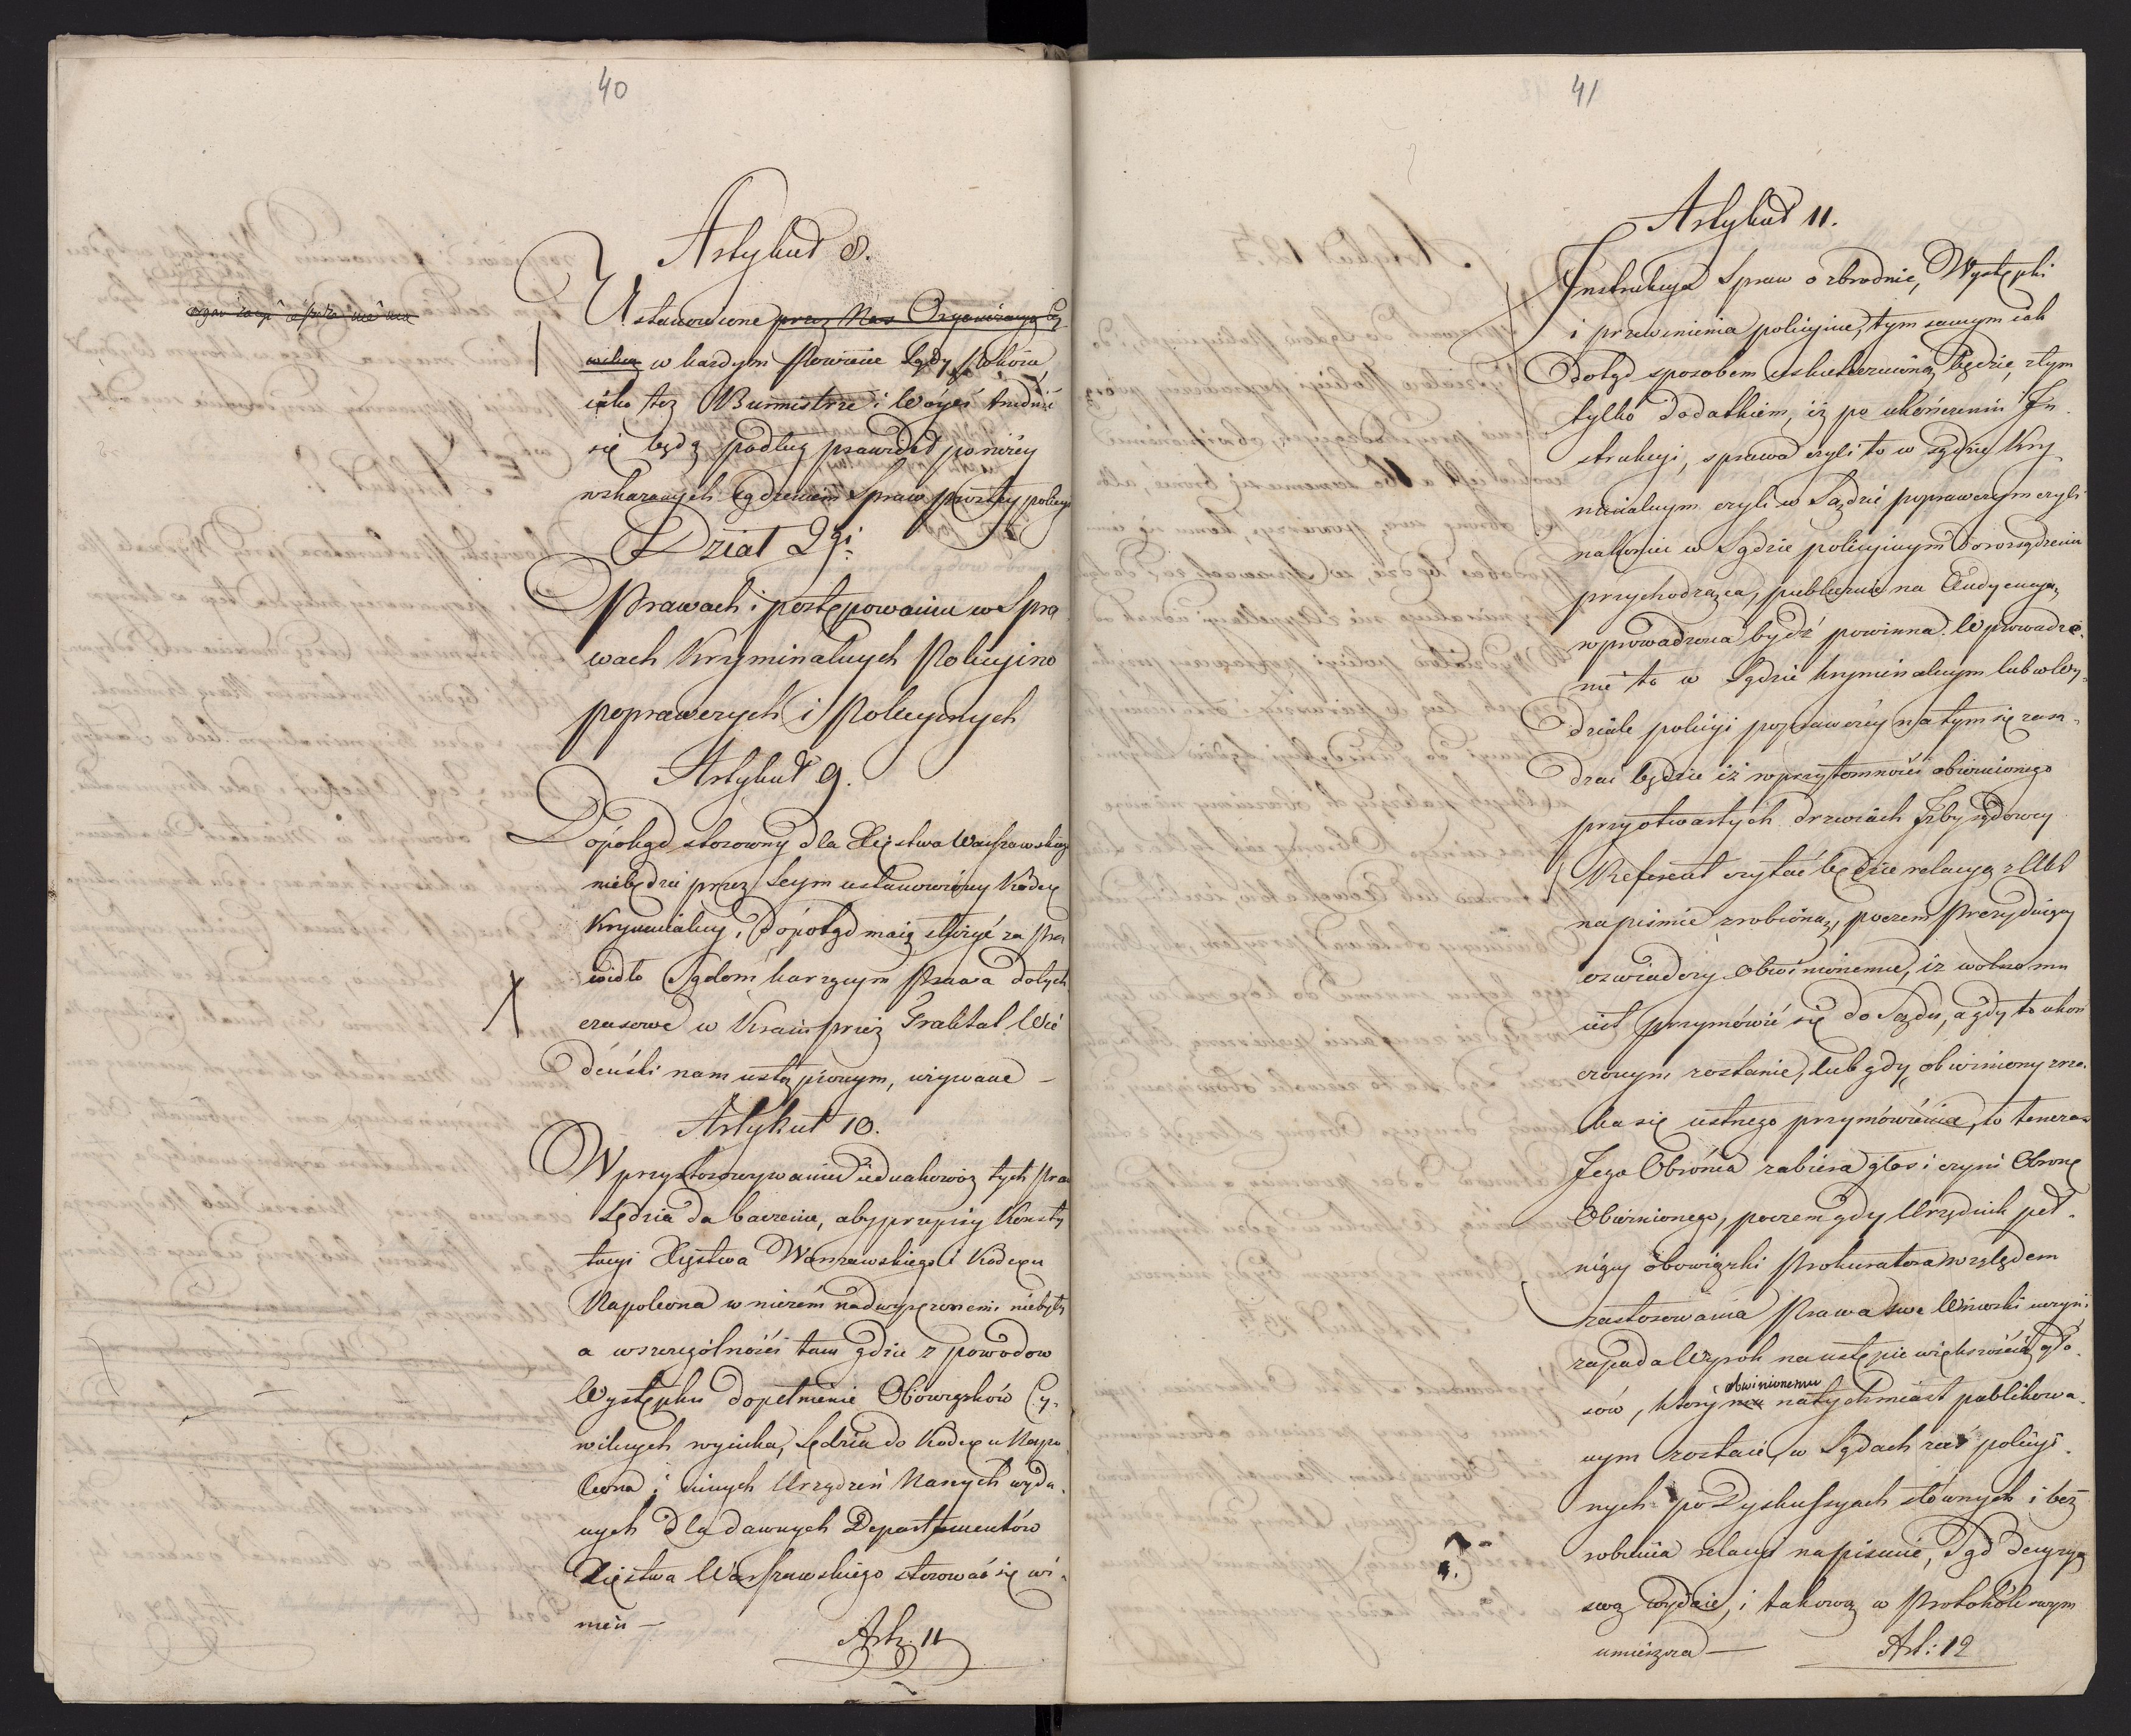 40
Artykuł 8.
Ustanowione przez Nas Organizacyą Cy-
wilną w każdym Powiecie Sądy Pokoiu,
iako też Burmistrze i Wóyci trudnić
się będą podług prawideł poniżey
wskazanych sądzeniem Spraw prostey policyi
Dział 2gi
Prawach i postępowaniu w Spra
wach Kryminalnych Policyino
poprawczych i Policyinych
Artykuł 9.
Dopókąd stosowny dla Xięstwa Warszawskiego
niebędzie przez Seym ustanowiony Kodex
Kryminalny, dopotąd maią służyć za Pra
widło Sądom karzącym Prawa dotych
czasowe w Kraiu przez Traktat Wie
deński nam ustąpionym, używane –
Artykuł 10.
W przystosowywaniu iednakowoż tych Praw
Sędzia da baczenie, aby przepisy Konsty
tucyi Xięstwa Warszawskiego i Kodexu
Napoleona w niczém nadwyręzonemi niebyły
a wszczególności tam gdzie z powodow
Występku dopełnienie Obowiązków Cy-
wilnych wynika, Sędzia do Kodexu Napo
leona i innych Urządzeń Naszych wyda-
nych dla dawnych Departamentów
Xięstwa Warszawskiego stosować się wi-
nien –
Art. 11
41
Artykuł 11.
Instrukcya Spraw o zbrodnie, Występki
i przewinienia policyine, tym samym iak
dotąd sposobem uskuteczniona będzie, z tym
tylko dodatkiem, iż po ukończeniu In-
strukcyi, sprawa czyli to w sądzie Kry
minalnym czyli w Sądzie poprawczym czyli
nakoniec w Sądzie policyinym do rozsądzenia
przychodząca, publicznie na Audyencyą
wprowadzona bydź powinna. Wprowadze-
nie to w Sądzie kryminalnym lub w Wy-
dziale policyi poprawczey na tym się zasa-
dzać będzie iż w przytomności obwinionego
przy otwartych drzwiach Izby sądowey
Referent czytać będzie relacyą z Akt
na piśmie zrobioną, poczem Prezyduiący
oświadczy Obwinionemu, iż wolno mu
iest przymówić się do Sądu, a gdy to ukoń
czonym zostanie, lub gdy obwiniony zrze-
ka się ustnego przymówienia, to tenczas
Jego Obrońca zabiera głos i czyni Obronę
Obwinionego, poczem gdy Urzędnik peł-
niący obowiązki Prokuratora względem
zastosowania Prawa swe Wnioski uczyni
zapada Wyrok na ustępie większością gło-
obwinionemu
sów, który mu natychmiast publikowa-
nym zostaie, w Sądach zaś policyi-
nych po Dyskussyach słownych i bez
robienia relacyi na piśmie, Sąd decyzyą
swą wydaie, i takową w Protokóle swym
umieszcza –
Art: 12